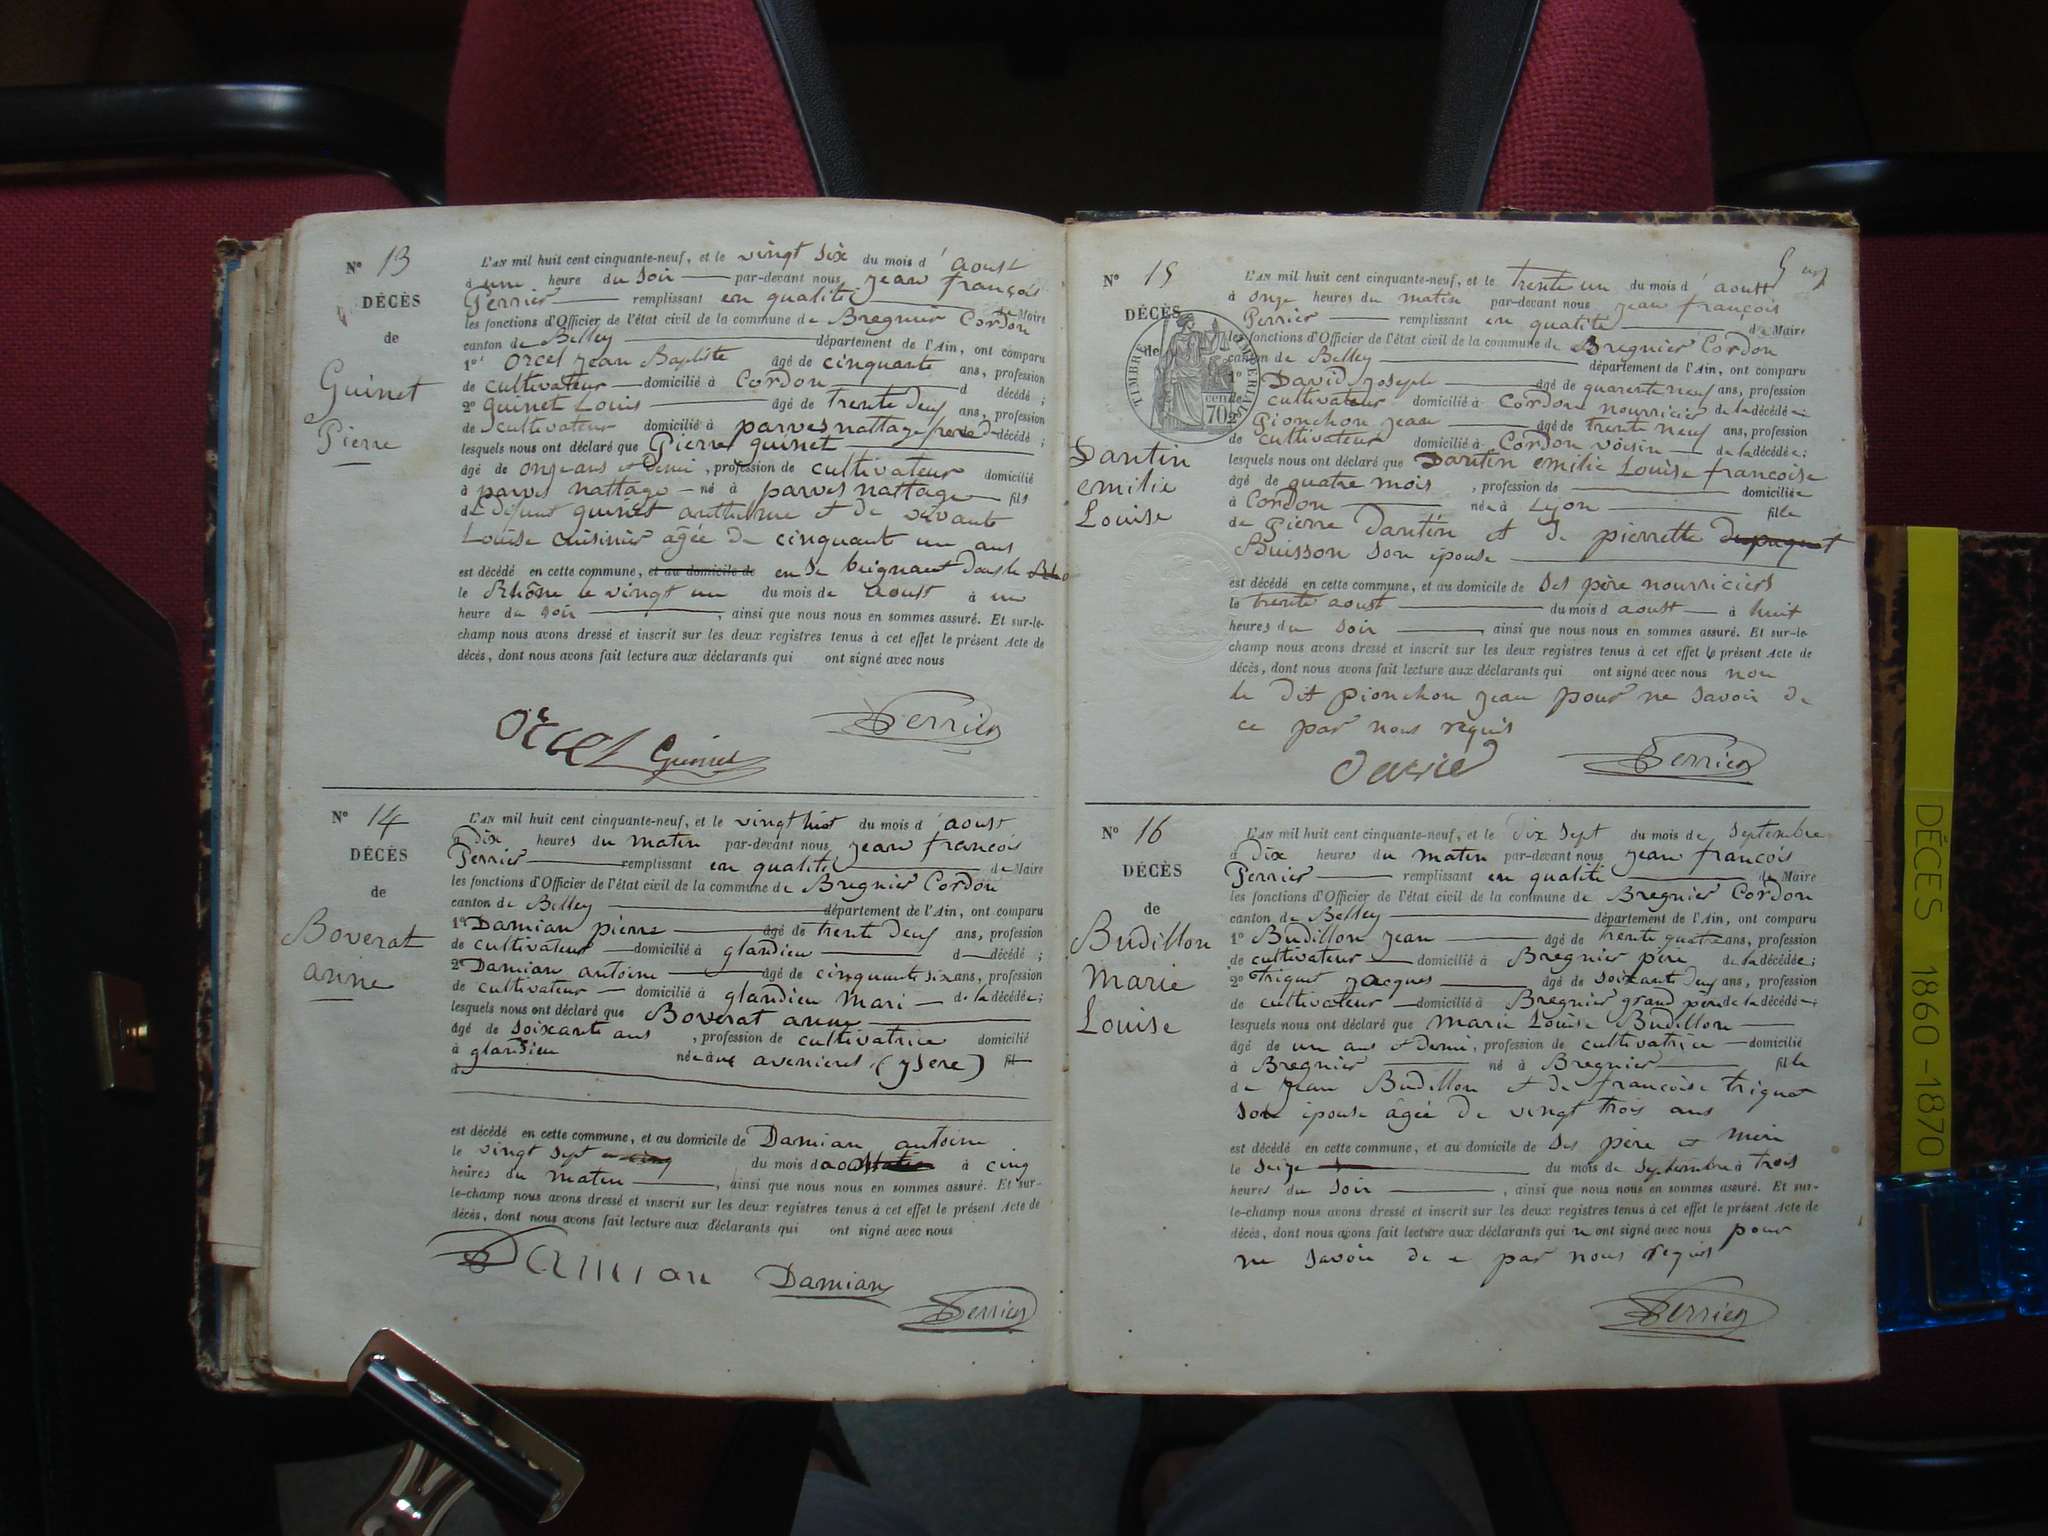 N° 13
DÉCÈS
de
Guinet
Pierre
L'AN mil huit cent cinquante-neuf, et le vingt six du mois d' aoust
à une heure du soir par-devant nous jean françois
Perrier remplissant en qualité de Maire
les fonctions d'Officier de l'état civil de la commune de Bregnier Cordon
canton de Belley département de l'Ain, ont comparu
1° Orcel jean Baptiste âgé de cinquante ans, profession
de cultivateur domicilié à Cordon d décédé ;
2° guinet Louis âgé de trente deux ans, profession
de cultivateur domicilié à parves nattage de décédé ;
lesquels nous ont déclaré que Pierre guinet
âgé de onze ans et demi , profession de cultivateur domicilié
à parves nattage né à parves nattage fils
de défunt guinet anthelme et de vivante
Louise cuisinier âgée de cinquante un ans
est décédé en cette commune, et au domicile de en se beignant dans le
le Rhône le vingt un du mois de aoust à un
heure du soir , ainsi que nous nous en sommes assuré. Et sur-le-
champ nous avons dressé et inscrit sur les deux registres tenus à cet effet le présent Acte de
décès, dont nous avons fait lecture aux déclarants qui ont signé avec nous
Orcel Guinet Perrier
N° 14
DÉCÈS
de
Boverat
anne
L'AN mil huit cent cinquante-neuf, et le vingt huit du mois d' aoust
Dix heures du matin par-devant nous jean françois
Perrier remplissant en qualité de Maire
les fonctions d'Officier de l'état civil de la commune de Bregnier Cordon
canton de Belley département de l'Ain, ont comparu
1° Damian pierre âgé de trente deux ans, profession
de cultivateur domicilié à glandieu d décédé ;
2° Damian antoine âgé de cinquante six ans, profession
de cultivateur domicilié à glandieu mari de la décédée ;
lesquels nous ont déclaré que Boverat anne
âgé de soixante ans , profession de cultivatrice domicilié
à glandieu née à avenieres (ysere) fil
à
est décédé en cette commune, et au domicile de Damian antoine
le vingt sept du mois d aoust à cinq
heures du matin , ainsi que nous nous en sommes assuré. Et sur-
le-champ nous avons dressé et inscrit sur les deux registres tenus à cet effet le présent Acte de
décès, dont nous avons fait lecture aux déclarants qui ont signé avec nous
Damian Damian Perrier
N° 15
DÉCÈS
de
TIMBRE IMPÉRIAL
70 cent
Dantin
emilie
Louise
L'AN mil huit cent cinquante-neuf, et le trente un du mois d' aoust
à onze heures du matin par-devant nous jean françois
Perrier remplissant en qualité de Maire
les fonctions d'Officier de l'état civil de la commune de Bregnier Cordon
canton de Belley département de l'Ain, ont comparu
1° David joseph âgé de quarente neuf ans, profession
de cultivateur domicilié à Cordon nourricier de la décédée
2° Pionchon jean âgé de trente neuf ans, profession
de cultivateur domicilié à Cordon voisin de la décédée ;
lesquels nous ont déclaré que Dantin emilie Louise francoise
âgé de quatre mois , profession de domiciliée
à Cordon née à Lyon fille
de Pierre Dantin et de pierrette
Buisson son épouse
est décédé en cette commune, et au domicile de ses père nourriciers
le trente aoust du mois d aoust à huit
heures du soir ainsi que nous nous en sommes assuré. Et sur-le-
champ nous avons dressé et inscrit sur les deux registres tenus à cet effet le présent Acte de
décès, dont nous avons fait lecture aux déclarants qui ont signé avec nous non
le dit pionchon jean pour ne savoir de
ce par nous requis
David Perrier
N° 16
DÉCÈS
de
Budillon
Marie
Louise
L'AN mil huit cent cinquante-neuf, et le dix sept du mois de septembre
à Dix heures du matin par-devant nous jean françois
Perrier remplissant en qualité de Maire
les fonctions d'Officier de l'état civil de la commune de Bregnier Cordon
canton de Belley département de l'Ain, ont comparu
1° Budillon jean âgé de trente quatre ans, profession
de cultivateur domicilié à Bregnier père de la décédée ;
2° triquet jacques âgé de soixante deux ans, profession
de cultivateur domicilié à Bregnier grand père de la décédée ;
lesquels nous ont déclaré que marie Louise Budillon
âgé de un ans et demi , profession de cultivatrice domicilié
à Bregnier né à Bregnier fille
de jean Budillon et de françoise triquet
son épouse âgée de vingt trois ans
est décédé en cette commune, et au domicile de ses père et mère
le seize du mois de septembre à trois
heures du soir , ainsi que nous nous en sommes assuré. Et sur-
le-champ nous avons dressé et inscrit sur les deux registres tenus à cet effet le présent Acte de
décès, dont nous avons fait lecture aux déclarants qui n ont signé avec nous pour
ne savoir de ce par nous requis
Perrier
DÉCES 1860-1870